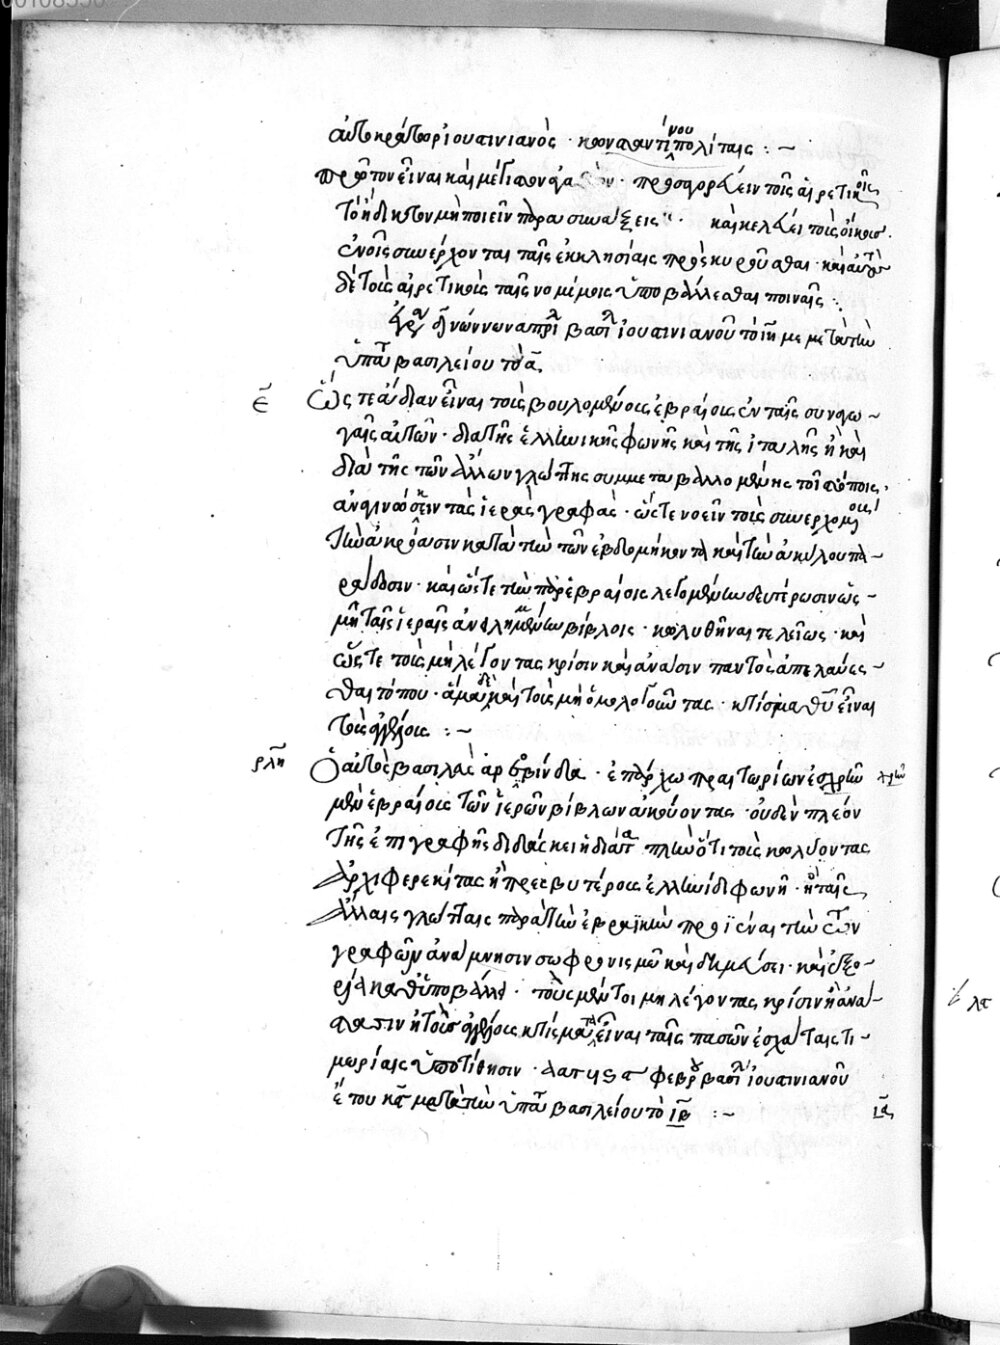 αὐτοκράτωρ ἰουστινιανὸς · κωνσταντινουπολίταις : ~
πρῶτον εἶναι καὶ μέγιστον ἀγαθὸν · προσαγορεύειν τοῖς αἱρετικοῖς
τὸ ἥδικτον μὴ ποιεῖν παρασυνάξεις · καὶ κελεύει τοὺς οἴκους
ἐν οἷς συνέρχονται ταῖς ἐκκλησίαις προσκυροῦσθαι · καὶ αὐτοὺς
δὲ τοὺς αἱρετικοὺς ταῖς νομίμοις ὑποβάλλεσθαι ποιναῖς :
βασιλ ἰουστινιανοῦ τὸ μετὰ τὴν
ὑπατ βασιλείου τὸ α
ε Ὥστε ἄδειαν εἶναι τοῖς βουλομένοις ἑβραίοις ἐν ταῖς συναγω-
γαῖς αὐτῶν · διὰ τῆς ἑλληνικῆς φωνῆς καὶ τῆς ἰταλῆς ἢ καὶ
διὰ τῆς τῶν ἄλλων γλώττης συμμεταβαλλομένης τοῖς τόποις,
ἀναγινώσκειν τὰς ἱερὰς γραφὰς · ὥστε νοεῖν τοὺς συνερχομένους
τὴν ἀκρόασιν κατὰ τὴν τῶν ἑβδομήκοντα καὶ τὴν ἀκύλου πα-
ράδοσιν · καὶ ὥστε τὴν παρ ἑβραίοις λεγομένην δευτέρωσιν ὡς
μὴ ταῖς ἱεραῖς βίβλοις · κωλυθῆναι τελείως · καὶ
ὥστε τοὺς μὴ λέγοντας κρίσιν καὶ ἀνάστασιν παντὸς ἀπελαύνεσ-
θαι τόπου · ἅμα δὲ καὶ τοὺς μὴ ὁμολογοῦντας · κτίσμα θῦ εἶναι
τοὺς ἀγγέλους : ~
ρλη Ὁ αὐτὸς βασιλεὺς ἀρεοβίνδα · ἐπάρχω πραιτωρίων
μὲν ἑβραίοις τῶν ἱερῶν βίβλων ἀκούοντας · οὐδὲν πλέον
τῆς ἐπιγραφῆς διδάσκει ἡ διάτ πλὴν ὅτι τοὺς κωλύοντας
ἀρχιφερεκίτας ἢ πρεσβυτέρους ἑλληνίδι φωνῆ · ἢ ταῖς
ἄλλαις γλώτταις παρὰ τὴν ἑβραϊκὴν προϊέναι τὴν τῶν
γραφῶν ἀνάμνησιν σωφρονισμῶ καὶ δημεύσει · καὶ ἐξο-
ρία καθυποβάλλει · τοὺς μέντοι μὴ λέγοντας κρίσιν ἢ ἀνά-
στασιν ἢ τοὺς ἀγγέλους κτίσματα εἶναι ταῖς πασῶν ἐσχάταις τι-
μωρίαις ὑποτίθησιν · φεβρ βασιλ ἰουστινιανοῦ
ἔτου κα μετὰ τὴν ὑπατ βασιλείου τὸ ιβ : ~